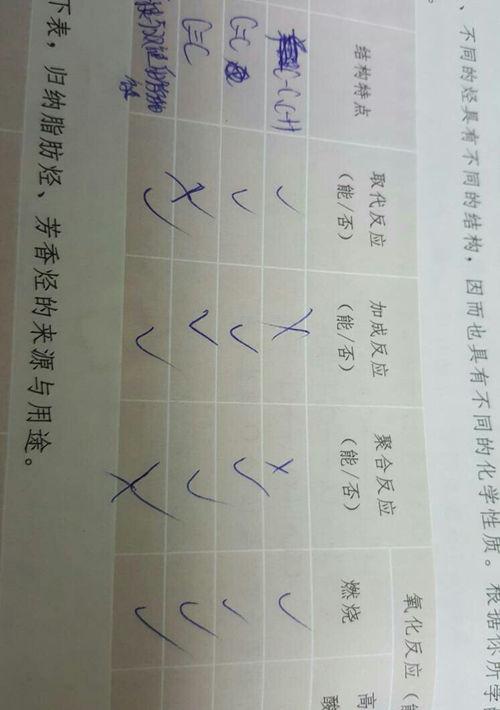 、不同的烃具有不同的结构，因而也具有不同的化学性质。根据你所学
。
结构特点
取代反应
（能/否）
加成反应
（能/否）
聚合反应
（能/否）
氧化反应（能
燃烧
高
酸
C-C、C-H
✓
X
×
✓
C=C
✓
✓
✓
✓
C≡C
X
✓
✓
✓
✓
✓
X
✓
下表，归纳脂肪烃、芳香烃的来源与用途。